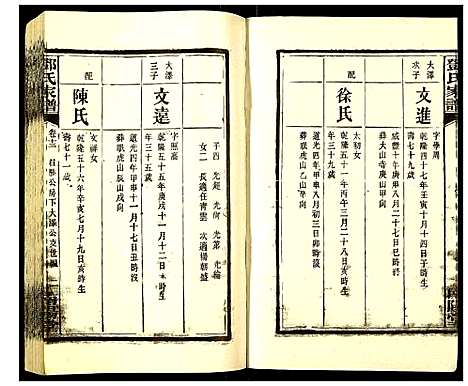 鄧氏家譜
大澤次子
文進
字學周
乾隆四十七年壬寅十月十四日子時生
咸豐十年庚申八月二十七日
葬大山寺庚山甲向
壽七十九歲
配
徐氏
太初女
乾隆五十一年丙午三月二十八日亥時生
道光四年甲申八月初三日卯時故
葬眠虎山乙山辛向
年三十九歲
子四 光超 光前 光弟 光倫
女二 長適任青雲 次適楊朝盛
大澤三子
文遠
字照高
乾隆五十五年庚戌十一月十二日水時生
道光四年甲申十一月十七日丑時沒
葬眠虎山辰山戌向
年三十五歲
配
陳氏
文祥女
乾隆五十六年辛亥七月十九日亥時生
壽七十一歲
鄧氏家譜
卷十二
公房下大澤公支世系